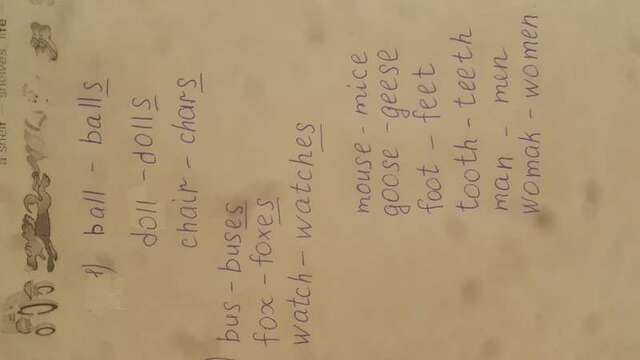 a shelf — shelves, life
1) ball - balls
doll - dolls
chair - chars
) bus - buses
fox - foxes
watch - watches
mouse - mice
goose - geese
foot - feet
tooth - teeth
man - men
womak - women